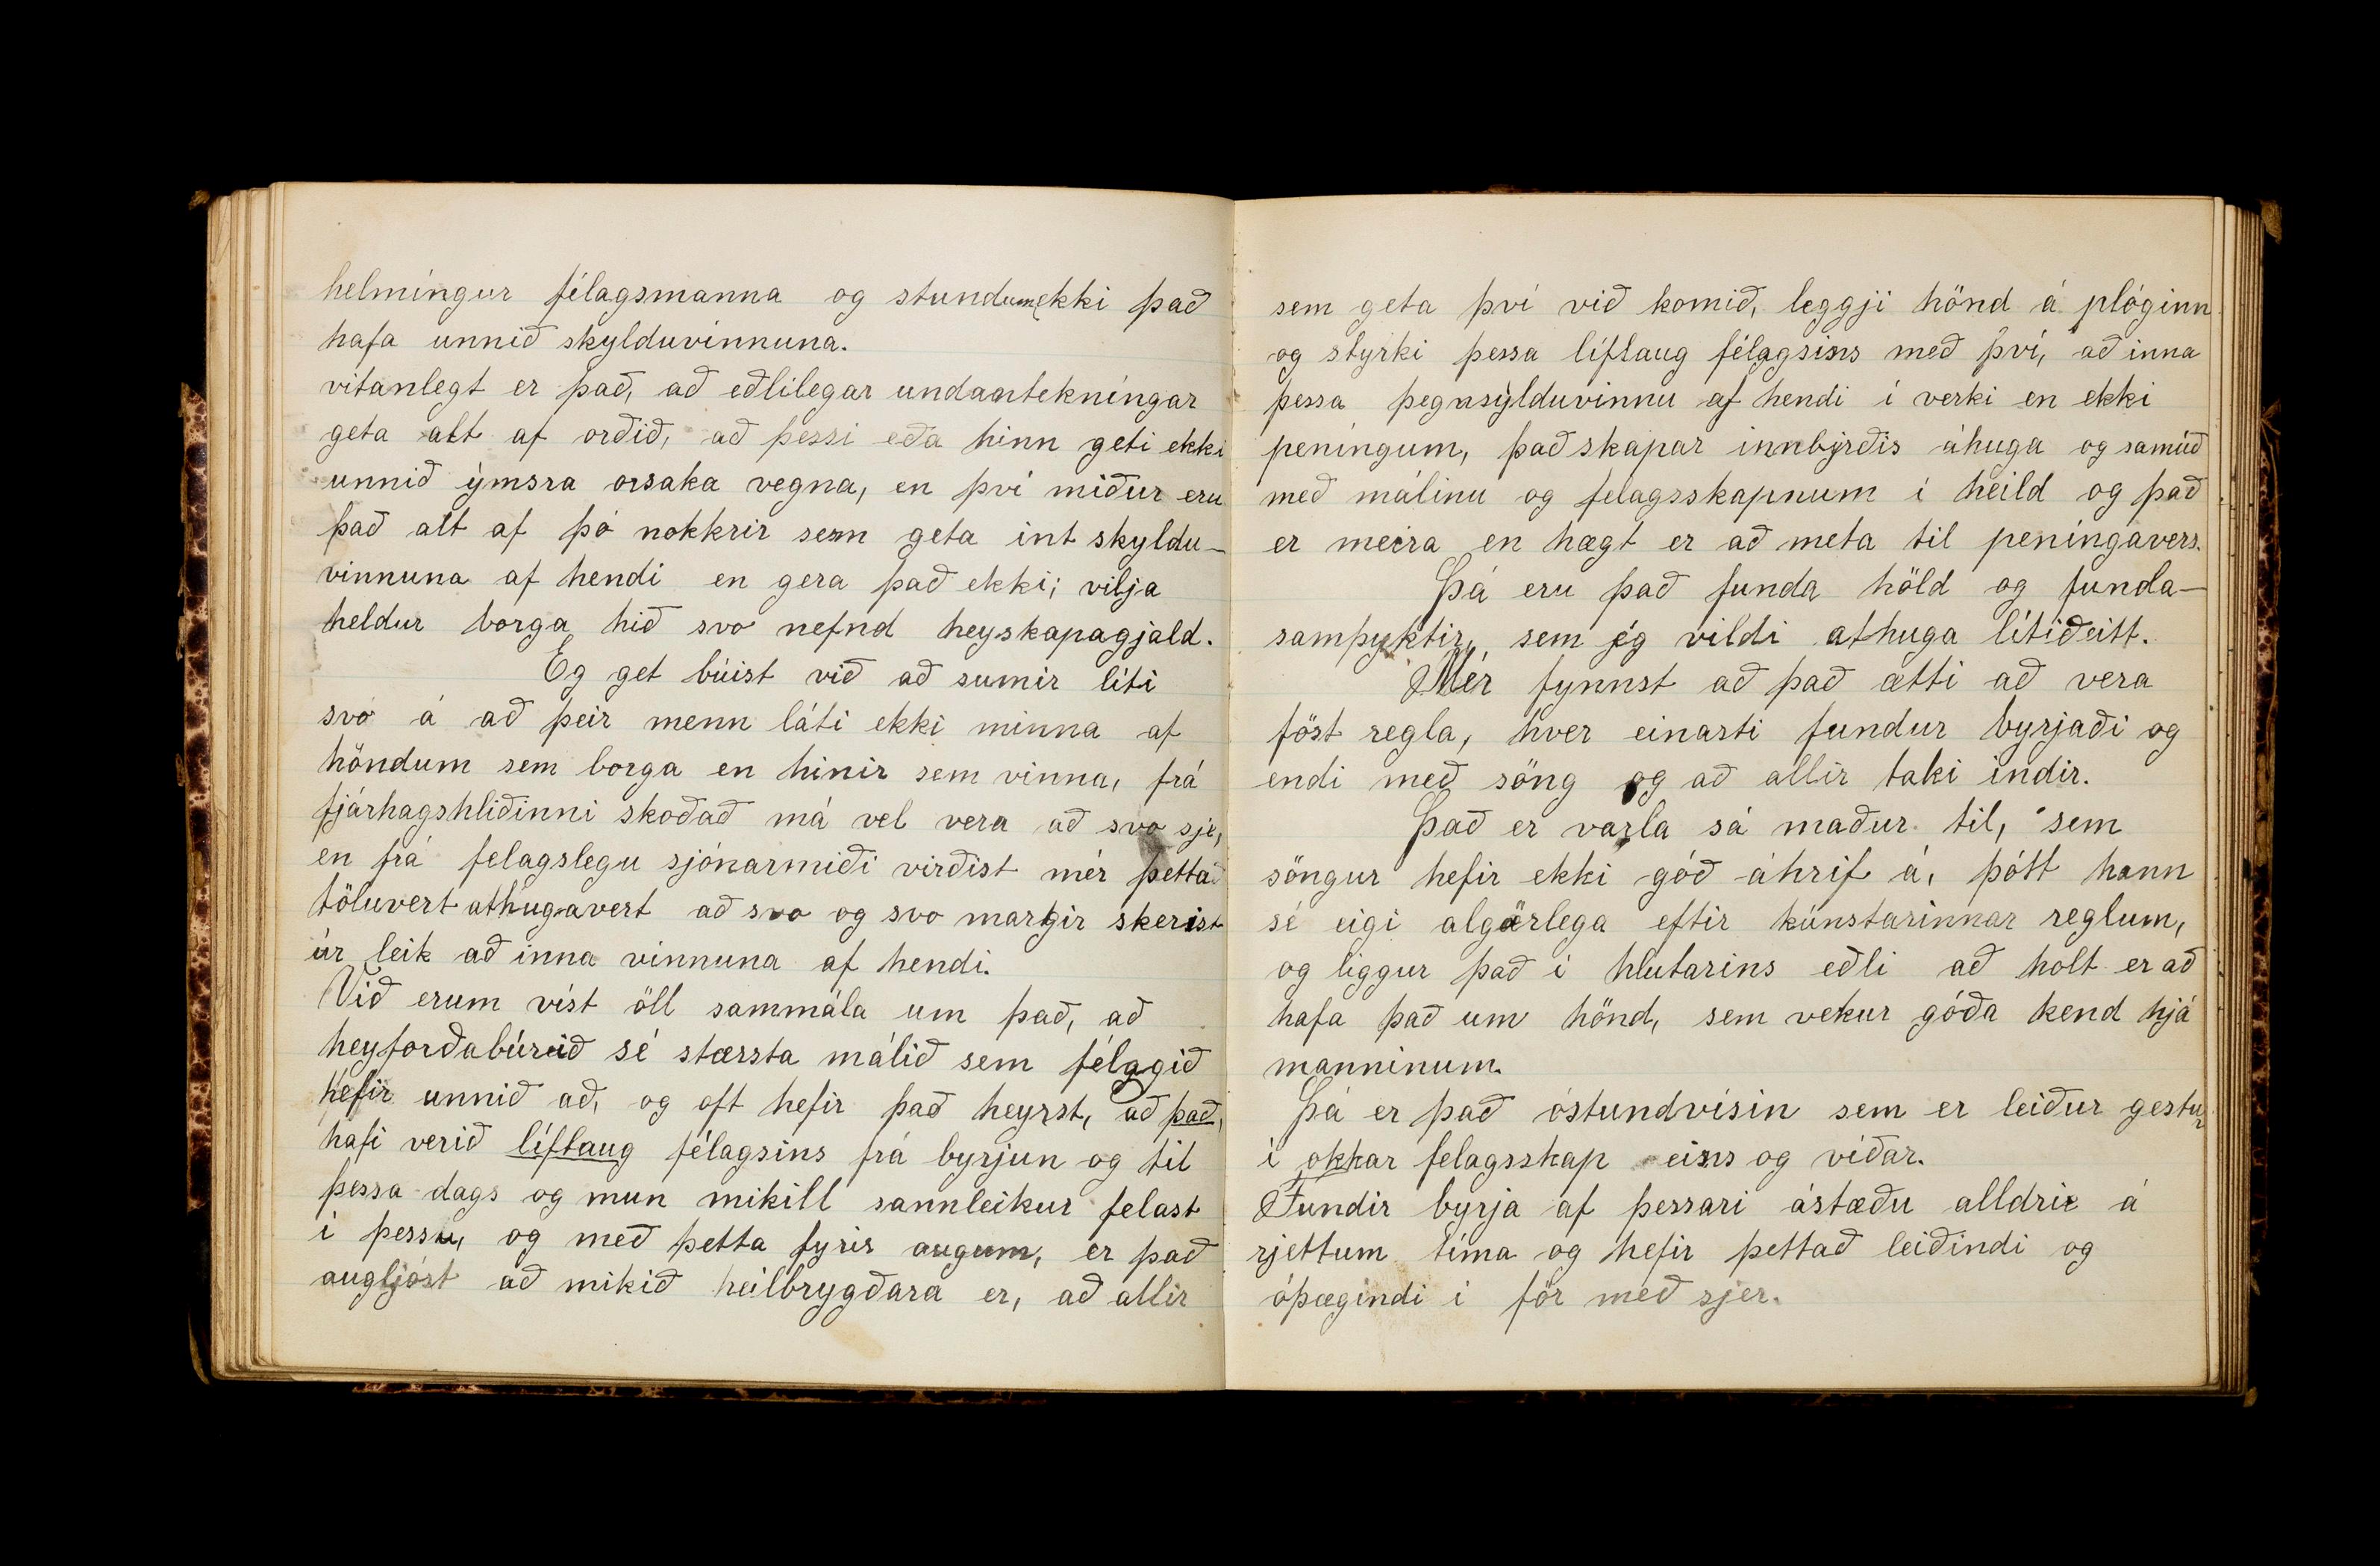 helmíngur félagsmanna og stundum ekki það
hafa unnið skylduvinnuna.
vitanlegt er það, að eðlilegar undantekníngar
geta alt af orðið, að þessi eða hinn geti ekki
unnið ýmsra orsaka vegna, en því miður eru
það alt af þó nokkrir sem geta int skyldu-
vinnuna af hendi en gera það ekki; vilja
heldur borga hið svo nefnd heyskapagjald.
Eg get búist við að sumir líti
svo á að þeir menn láti ekki minna af
höndum sem borga en hinir sem vinna, frá
fjárhagshliðinni skoðað má vel vera að svo sje,
en frá felagslegu sjónarmiði virðist mér þettað
töluvert athugavert að svo og svo margir skerist
úr leik að inna vinnuna af hendi.
Við erum víst öll sammála um það, að
heyforðabúrið sé stærsta málið sem félagið
hefir unnið að, og oft hefir það heyrst, að það,
hafi verið líftaug félagsins frá byrjun og til
þessa dags og mun mikill sannleikur felast
í þessu, og með þetta fyrir augum, er það
augljóst að mikið heilbrygðara er, að allir
sem geta því við komið, leggji hönd á plóginn
og styrki þessa líftaug félagsins með því, að inna
þessa þegnsýlduvinnu af hendi í verki en ekki
peníngum, það skapar innbyrðis áhuga og samúð
með málinu og felagsskapnum í heild og það
er meira en hægt er að meta til peníngavers.
Þá eru það funda höld og funda-
samþyktir, sem ég vildi athuga lítið eitt.
Mér fynnst að það ætti að vera
föst regla, hver einasti fundur byrjaði og
endi með söng og að allir taki indir.
Það er varla sá maður til, sem
söngur hefir ekki góð áhrif á, þótt hann
sé eigi algerlega eftir kúnstarinnar reglum,
og liggur það í hlutarins eðli að holt er að
hafa það um hönd, sem vekur góða kend hjá
manninum.
Þá er það óstundvísin sem er leiður gestur
í okkar felagsskap eins og víðar.
Fundir byrja af þessari ástæðu alldrie á
rjettum tíma og hefir þettað leiðindi og
óþægindi í för með sjer.